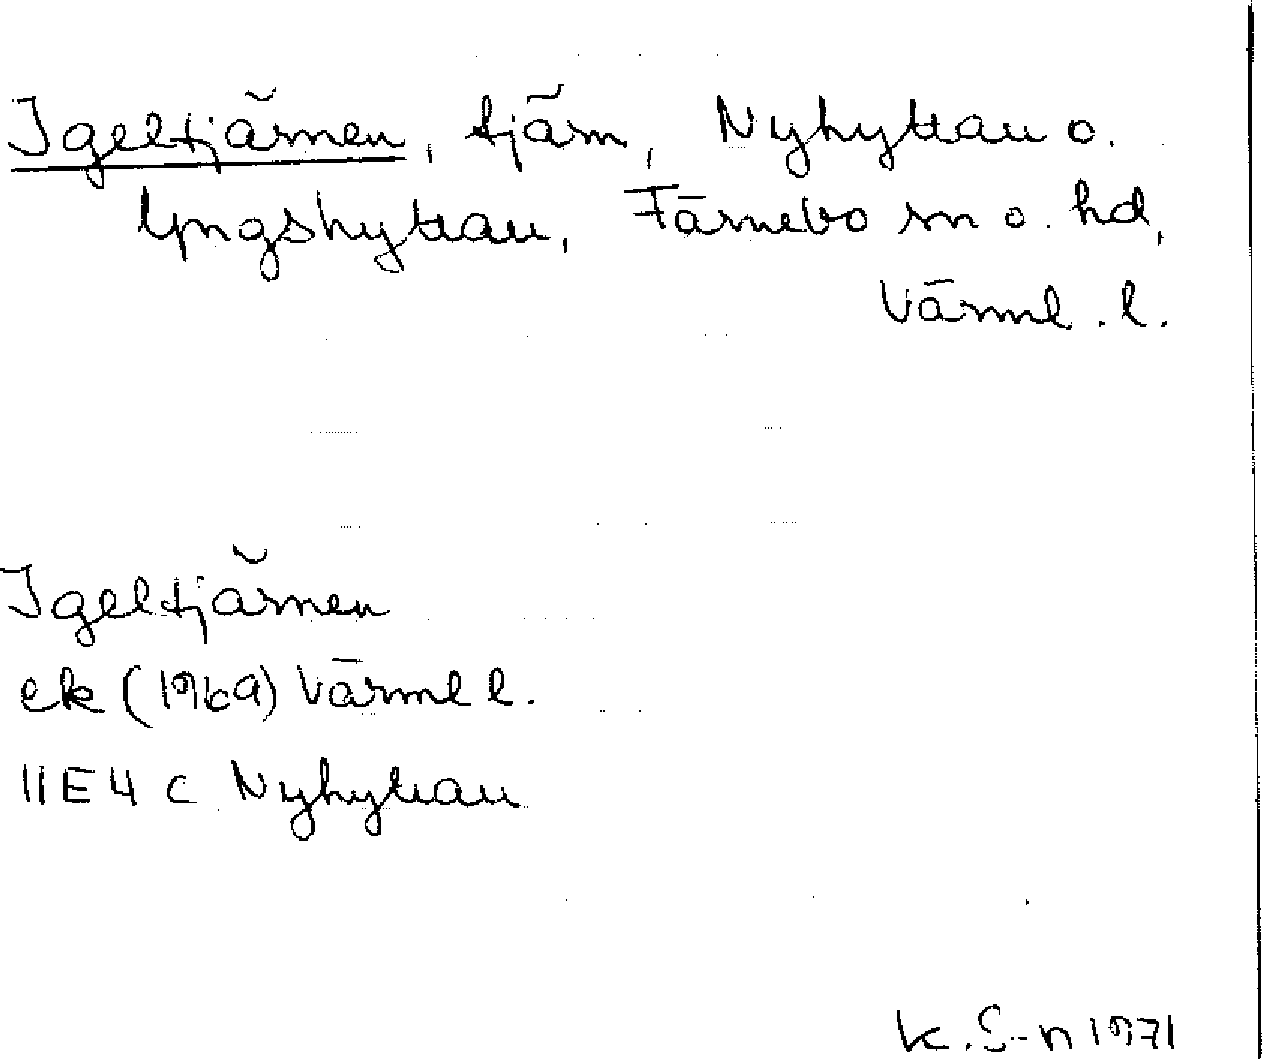 Igeltjärnen, tjärn, Nyhyttan o.
Lyngshyttan, Färnebo sn o. hd,
Värml. l.
Igeltjärnen
ek (1969) Värml l.
11E4c Nyhyttan
K. S-n 1971